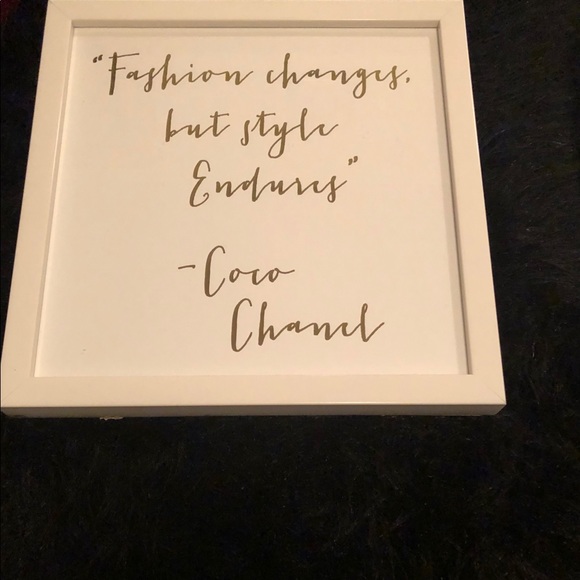 "Fashion changes,
but style
Endures"
-Coco
Chanel